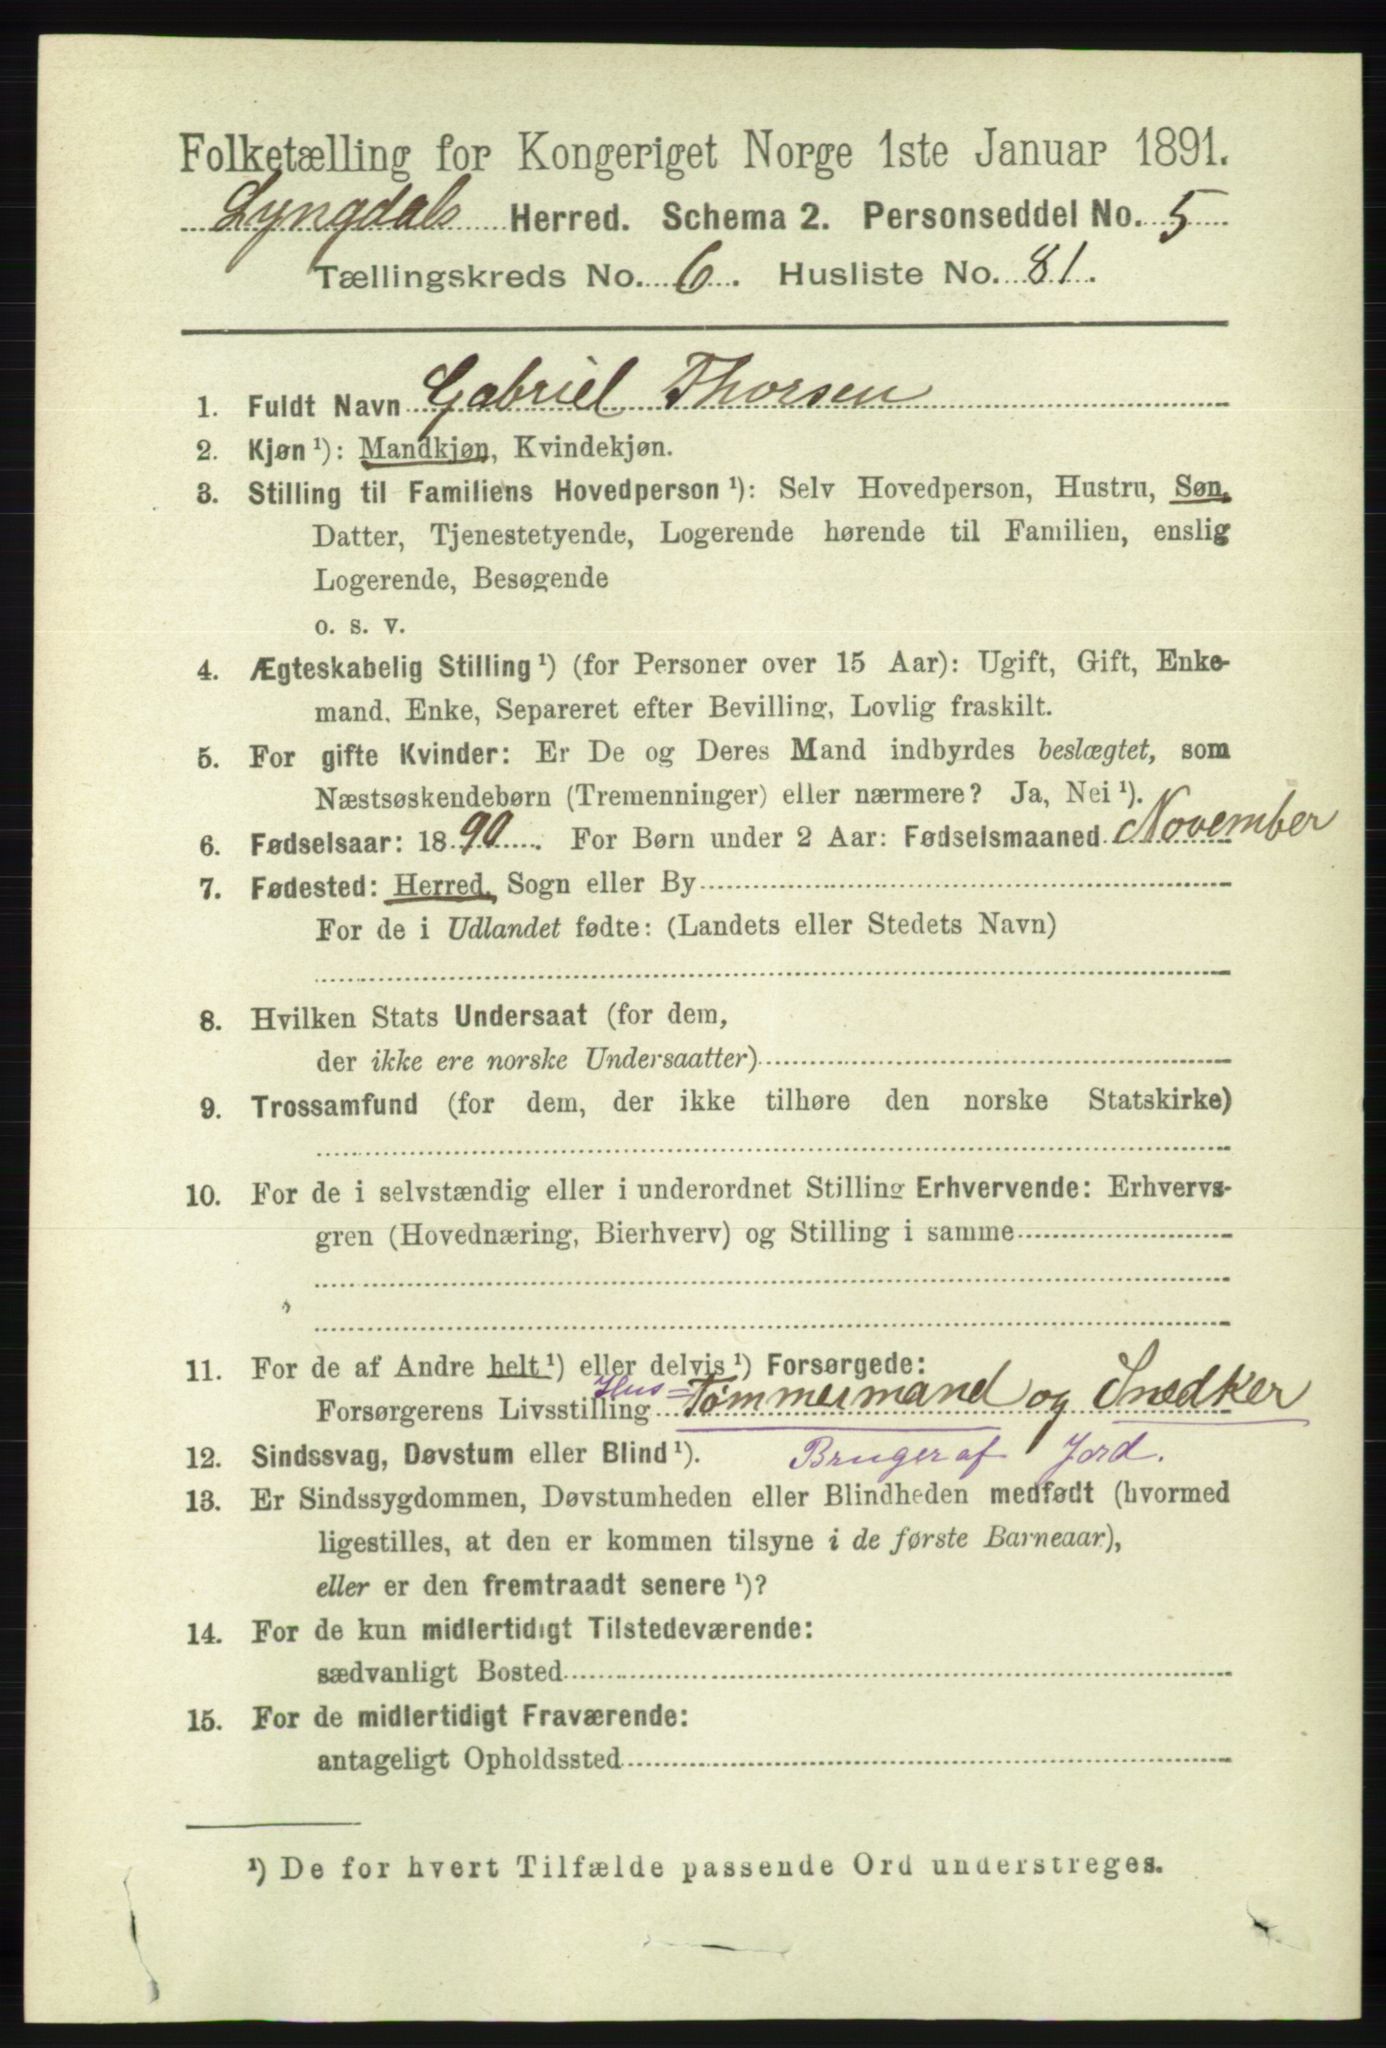 Folketælling for Kongeriget Norge 1ste Januar 1891.
Lyngdals Herred. Schema 2. Personseddel No. 5
Tællingskreds No. 6. Husliste No. 81.
1. Fuldt Navn Gabriel Thorsen
2. Kjøn ¹): Mandkjøn, Kvindekjøn.
3. Stilling til Familiens Hovedperson ¹): Selv Hovedperson, Hustru, Søn,
Datter, Tjenestetyende, Logerende hørende til Familien, enslig
Logerende, Besøgende
o. s. v.
4. Ægteskabelig Stilling ¹) (for Personer over 15 Aar): Ugift, Gift, Enke-
mand, Enke, Separeret efter Bevilling, Lovlig fraskilt.
5. For gifte Kvinder: Er De og Deres Mand indbyrdes beslægtet, som
Næstsøskendebørn (Tremenninger) eller nærmere? Ja, Nei ¹).
6. Fødselsaar: 1890. For Børn under 2 Aar: Fødselsmaaned November
7. Fødested: Herred, Sogn eller By
For de i Udlandet fødte: (Landets eller Stedets Navn)
8. Hvilken Stats Undersaat (for dem,
der ikke ere norske Undersaatter)
9. Trossamfund (for dem, der ikke tilhøre den norske Statskirke)
10. For de i selvstændig eller i underordnet Stilling Erhvervende: Erhvervs-
gren (Hovednæring, Bierhverv) og Stilling i samme
11. For de af Andre helt ¹) eller delvis ¹) Forsørgede:
Forsørgerens Livsstilling Hus=Tømmermand og Snedker
12. Sindssvag, Døvstum eller Blind ¹). Bruger af Jord.
13. Er Sindssygdommen, Døvstumheden eller Blindheden medfødt (hvormed
ligestilles, at den er kommen tilsyne i de første Barneaar),
eller er den fremtraadt senere ¹)?
14. For de kun midlertidigt Tilstedeværende:
sædvanligt Bosted
15. For de midlertidigt Fraværende:
antageligt Opholdssted
¹) De for hvert Tilfælde passende Ord understreges.